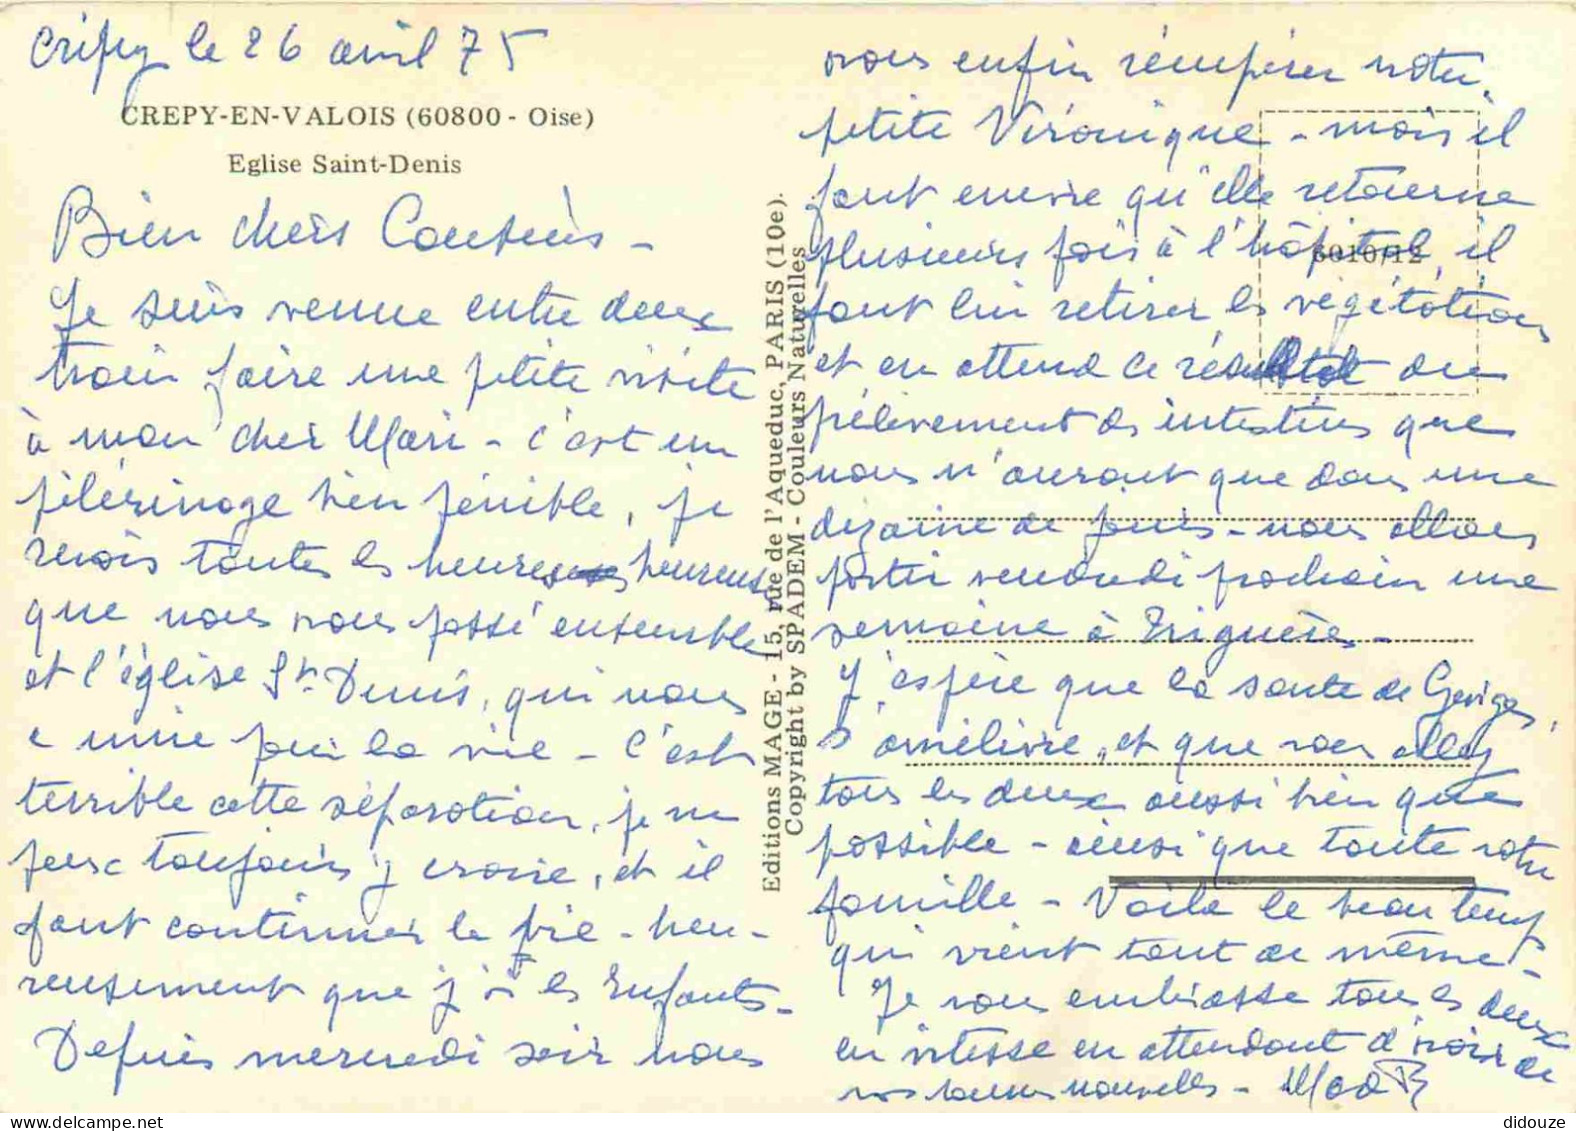 Crépy le 26 avril 75
CREPY-EN-VALOIS (60800 - Oise)
Eglise Saint-Denis
Bien chers Cousins -
Je suis venue entre deux
train faire une petite visite
à mon cher Mari - c'est un
pélérinage bien pénible, je
revois toutes les heures heureuses
que nous avons passé ensemble
et l'église St Denis, qui nous
a unie pour la vie - C'est
terrible cette séparation, je ne
peux toujours y croire, et il
faut continuer la vie - heu-
reusement que j'ai les Enfants -
Depuis mercredi soir nous
Editions MAGE - 15, rue de l'Aqueduc, PARIS (10e).
Copyright by SPADEM - Couleurs Naturelles
6010/12
avons enfin récupérer notre
petite Véronique - mais il
faut encore qu'elle retourne
plusieurs fois à l'hôpital, il
faut lui retirer les végétations
et on attend le résultat du
prélèvement des intestins que
nous n'auront que dans une
dizaine de jours - nous allons
partir vendredi prochain une
semaine à Triguères -
J'espère que la santé de Georges,
s'améliore, et que vous allez
tous les deux aussi bien que
possible - ainsi que toute votre
famille - Voila le beau temps
qui vient tout de même -
Je vous embrasse tous les deux
en vitesse en attendant d'avoir de
vos bonnes nouvelles -
didouze